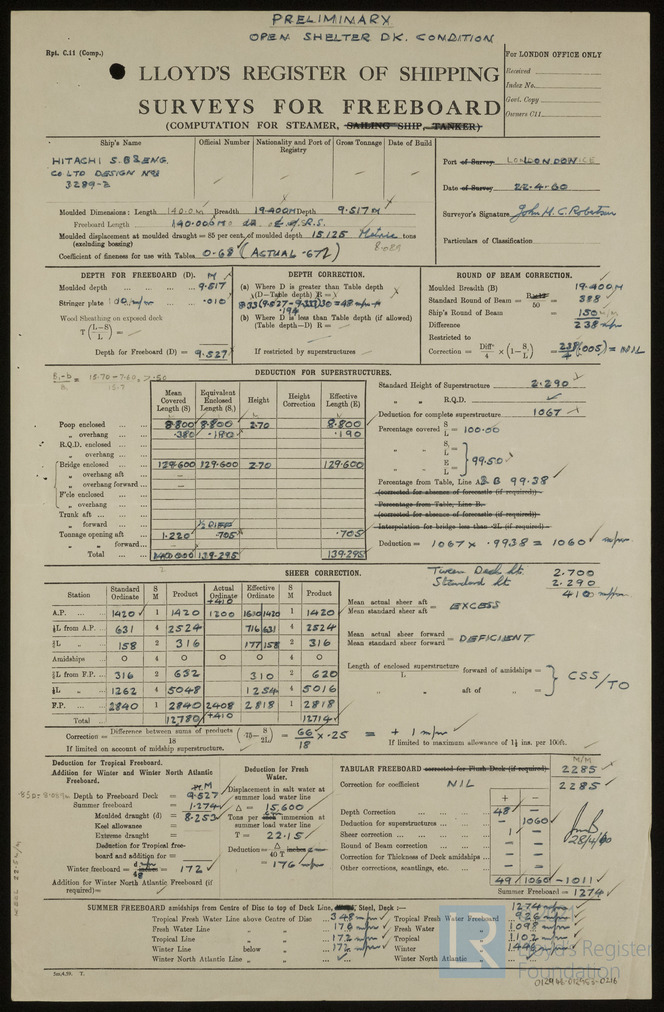 PRELIMINARY
OPEN SHELTER DK. CONDITION
Rpt. C.11 (Comp.)
For LONDON OFFICE ONLY
Received
Index No.
Govt. Copy
Owners C11
LLOYD'S REGISTER OF SHIPPING
SURVEYS FOR FREEBOARD
(COMPUTATION FOR STEAMER, SAILING SHIP, TANKER)
Ship's Name
Official Number
Nationality and Port of Registry
Gross Tonnage
Date of Build
HITACHI S.B & ENG.
CO LTD DESIGN No
3289-2
Port of Survey LONDON
Date of Survey 22.4.60
Surveyor's Signature John H.C. Robertson
Particulars of Classification
Moulded Dimensions: Length 140.0 m Breadth 19.400M Depth 9.517 M
Freeboard Length 140.000M
Moulded displacement at moulded draught = 85 per cent. of moulded depth 15125 Metric tons
(excluding bossing)
Coefficient of fineness for use with Tables 0.68 (ACTUAL .672)
DEPTH FOR FREEBOARD (D). M
Moulded depth 9.517
Stringer plate 10 m/m .010
Wood Sheathing on exposed deck
T (L-S/L) =
Depth for Freeboard (D) = 9.527
DEPTH CORRECTION.
(a) Where D is greater than Table depth
(D-Table depth) R =
(b) Where D is less than Table depth (if allowed)
(Table depth-D) R =
If restricted by superstructures
ROUND OF BEAM CORRECTION.
Moulded Breadth (B) 19.400M
Standard Round of Beam = 388
Ship's Round of Beam = 150 m/m
Difference 238 m/m
Restricted to
Correction = Diff/4 × (1-S/L) = 238/4 (.005) = NIL
DEDUCTION FOR SUPERSTRUCTURES.
Mean Covered Length (S)
Equivalent Enclosed Length (S₁)
Height
Height Correction
Effective Length (E)
Poop enclosed 8.800 8.800 2.70 8.800
" overhang .380 .190 .190
R.Q.D. enclosed
" overhang
Bridge enclosed 129.600 129.600 2.70 129.600
" overhang aft
" overhang forward
F'cle enclosed
" overhang
Trunk aft
" forward ½ DIFF
Tonnage opening aft 1.220 .705 .705
" " forward
Total 140.000 139.295 139.295
Standard Height of Superstructure 2.290
" " R.Q.D.
Deduction for complete superstructure 1067
Percentage covered S/L = 100.00
" " S₁/L
" " E/L = 99.50
Percentage from Table, Line B 99.38
(corrected for absence of forecastle (if required))
Percentage from Table, Line B.
(corrected for absence of forecastle (if required))
Interpolation for bridge less than .2L (if required)
Deduction = 1067 x .9938 = 1060 m/m
SHEER CORRECTION.
Tween Deck ht. 2.700
Standard ht 2.290
410 m/m
Station
Standard Ordinate
S M
Product
Actual Ordinate
Effective Ordinate
S M
Product
+410
A.P. 1420 1 1420 1200 1610 1420 1 1420
⅙L from A.P. 631 4 2524 716 631 4 2524
⅓L " 158 2 316 177 158 2 316
Amidships 0 4 0 0 0 4 0
⅓L from F.P. 316 2 632 310 2 620
⅙L " 1262 4 5048 1254 4 5016
F.P. 2840 1 2840 2408 2818 1 2818
Total 12780 +410 12714
Mean actual sheer aft / Mean standard sheer aft = EXCESS
Mean actual sheer forward / Mean standard sheer forward = DEFICIENT
Length of enclosed superstructure / L forward of amidships =
" " aft of " =
CSS/TO
Correction = Difference between sums of products / 18 (.75 - S/2L) = 66/18 × .25 = + 1 m/m
If limited on account of midship superstructure.
If limited to maximum allowance of 1½ ins. per 100ft.
Deduction for Tropical Freeboard.
Addition for Winter and Winter North Atlantic Freeboard.
M
Depth to Freeboard Deck = 9.527
Summer freeboard = 1.274
Moulded draught (d) = 8.253
Keel allowance =
Extreme draught =
Deduction for Tropical freeboard and addition for
Winter freeboard = 172
Addition for Winter North Atlantic Freeboard (if required) =
Deduction for Fresh Water.
Displacement in salt water at summer load water line
Δ = 15,600
Tons per immersion at summer load water line
T = 22.15
Deduction = Δ/40 T inches
= 176 m/m
TABULAR FREEBOARD corrected for Flush Deck (if required) M/M 2285
Correction for coefficient NIL 2285
+ -
Depth Correction 48 -
Deduction for superstructures - 1060
Sheer correction 1 -
Round of Beam correction - -
Correction for Thickness of Deck amidships - -
Other corrections, scantlings, etc. - -
49 1060 -1011
Summer Freeboard = 1274
28/4/60
SUMMER FREEBOARD amidships from Centre of Disc to top of Deck Line, Steel, Deck :— 1274 m/m
Tropical Fresh Water Line above Centre of Disc 348 m/m
Fresh Water Line " " 176 m/m
Tropical Line " " 172 m/m
Winter Line below " 172 m/m
Winter North Atlantic Line " "
Tropical Fresh Water Freeboard 926 m/m
Fresh Water " 1098 m/m
Tropical " 1102 m/m
Winter " 1446 m/m
Winter North Atlantic "
LR
Lloyd's Register
Foundation